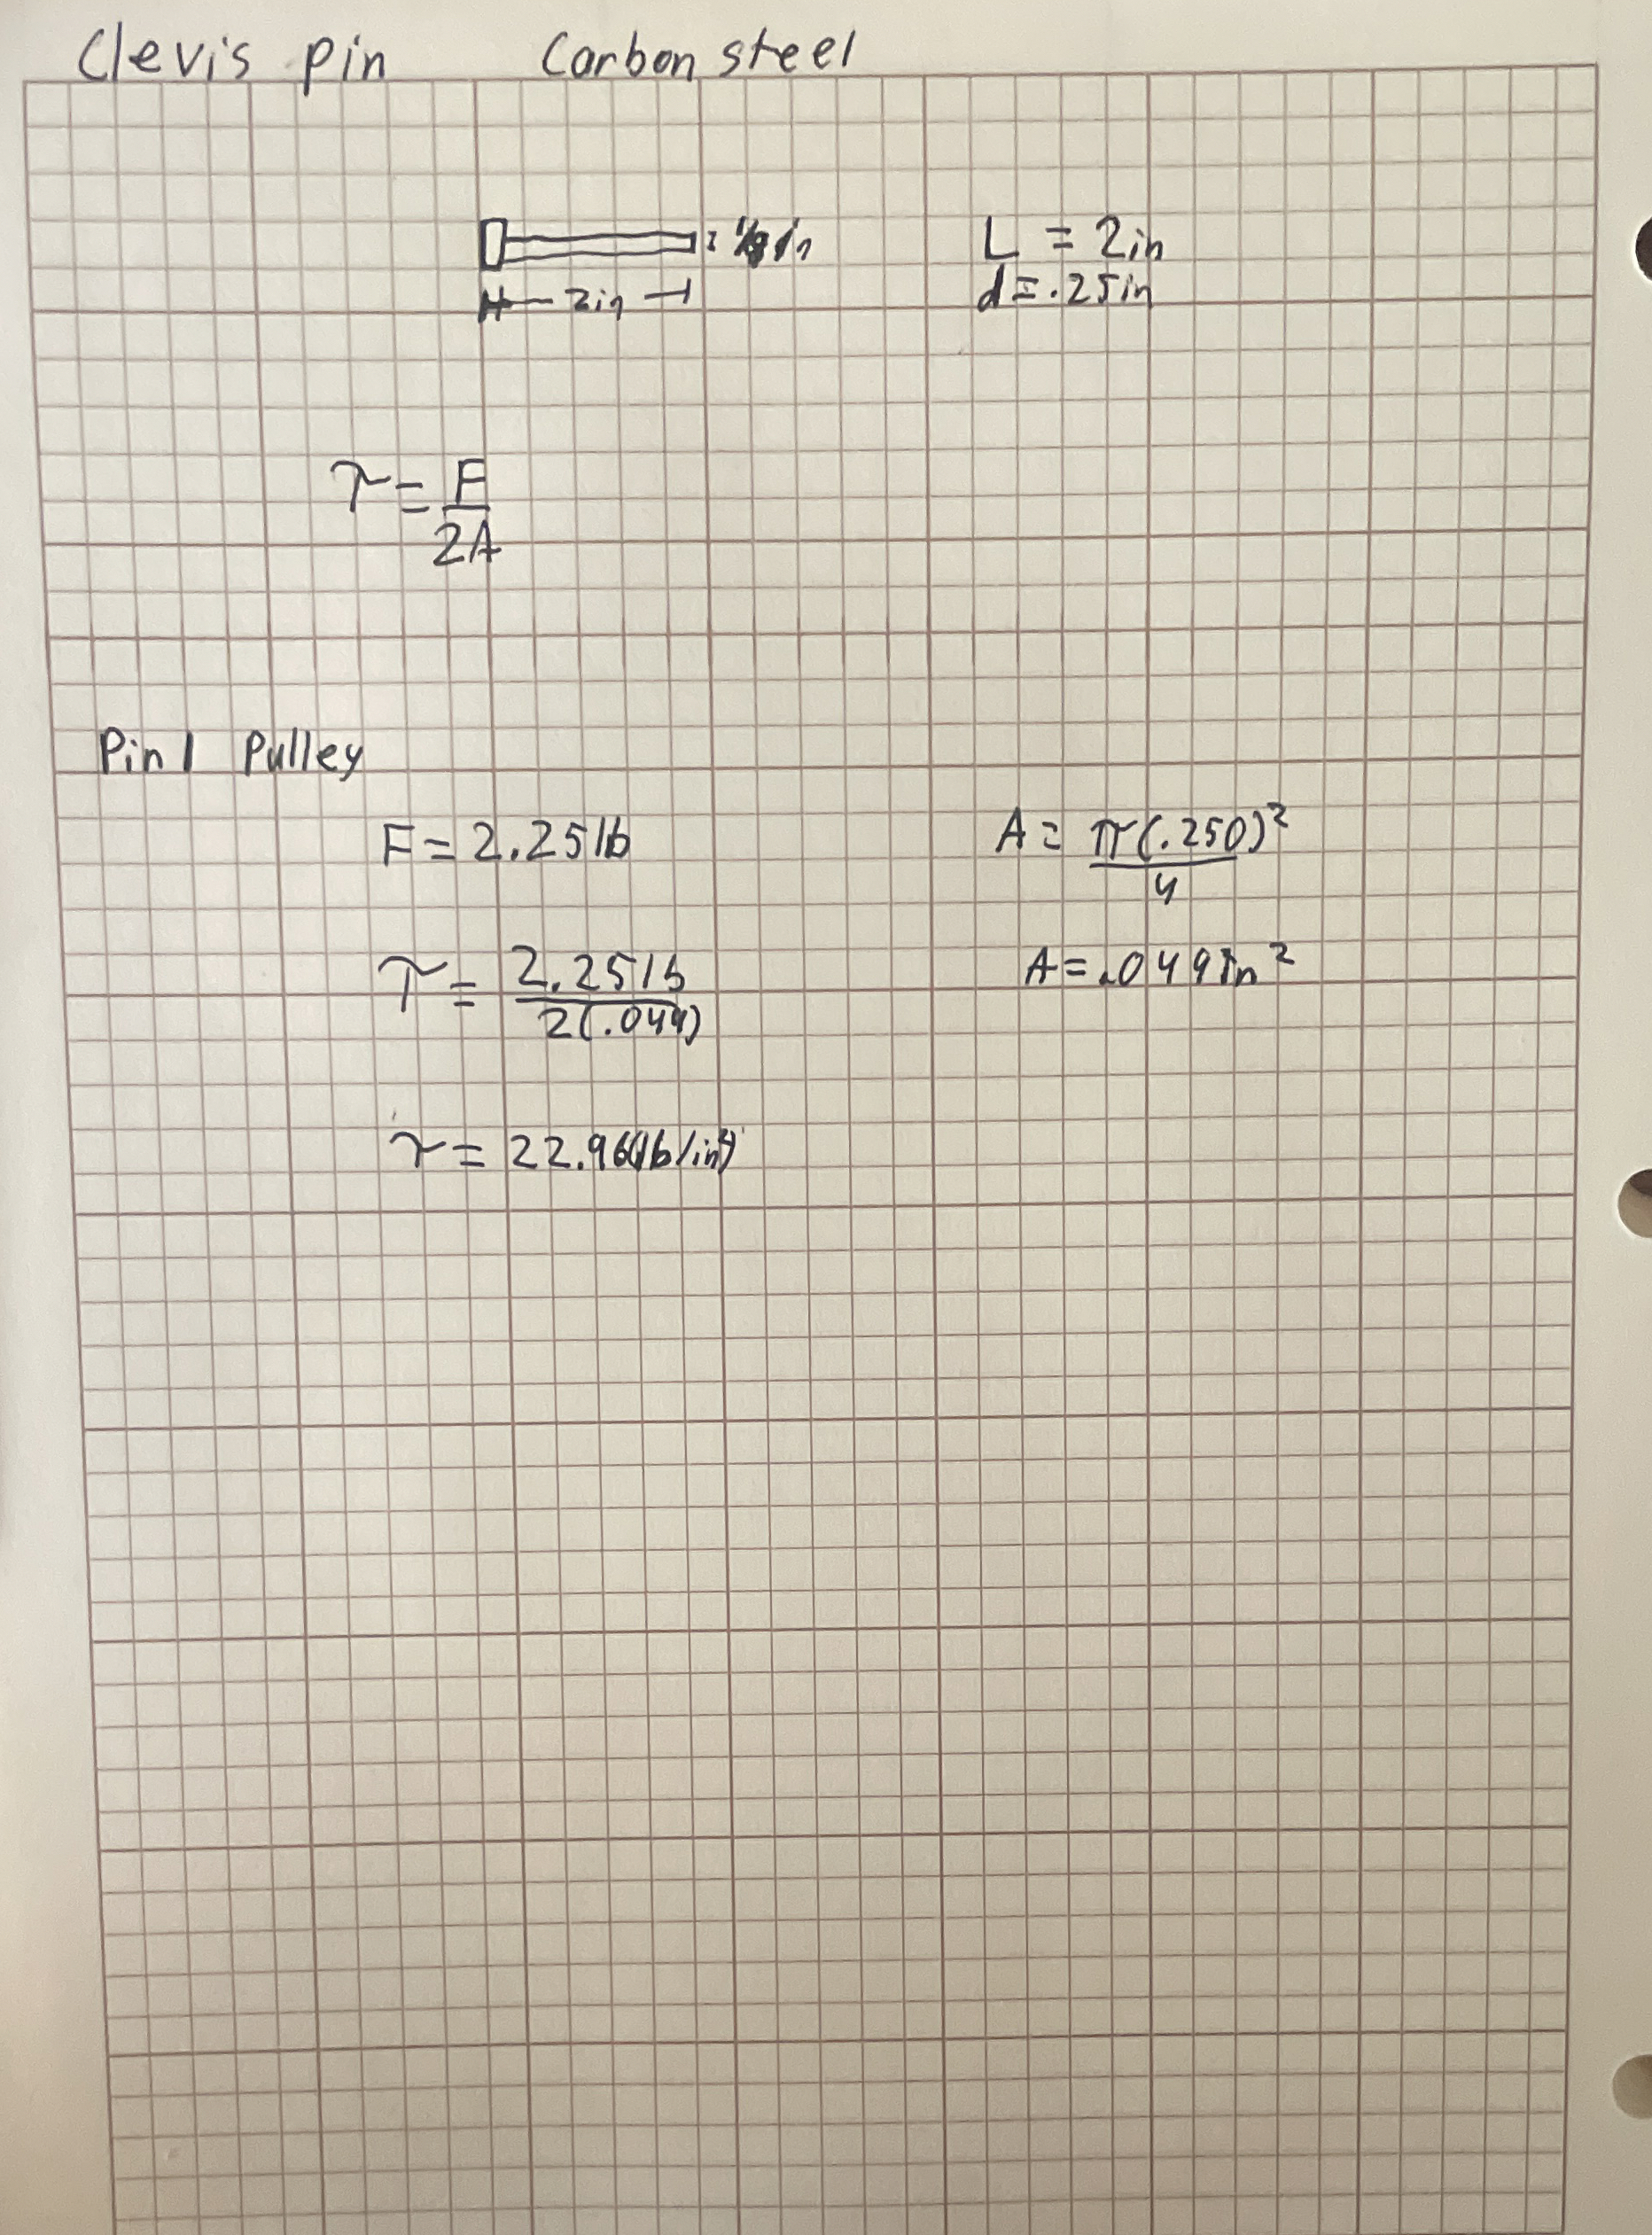 Clevis pin Carbon steel
L = 2in
2in d = .25in
τ = F
2A
Pin 1 Pulley
F = 2.25 lb A = π(.250)²
4
τ = 2.25 lb A = .049 In²
2(.049)
τ = 22.96(lb/in²)